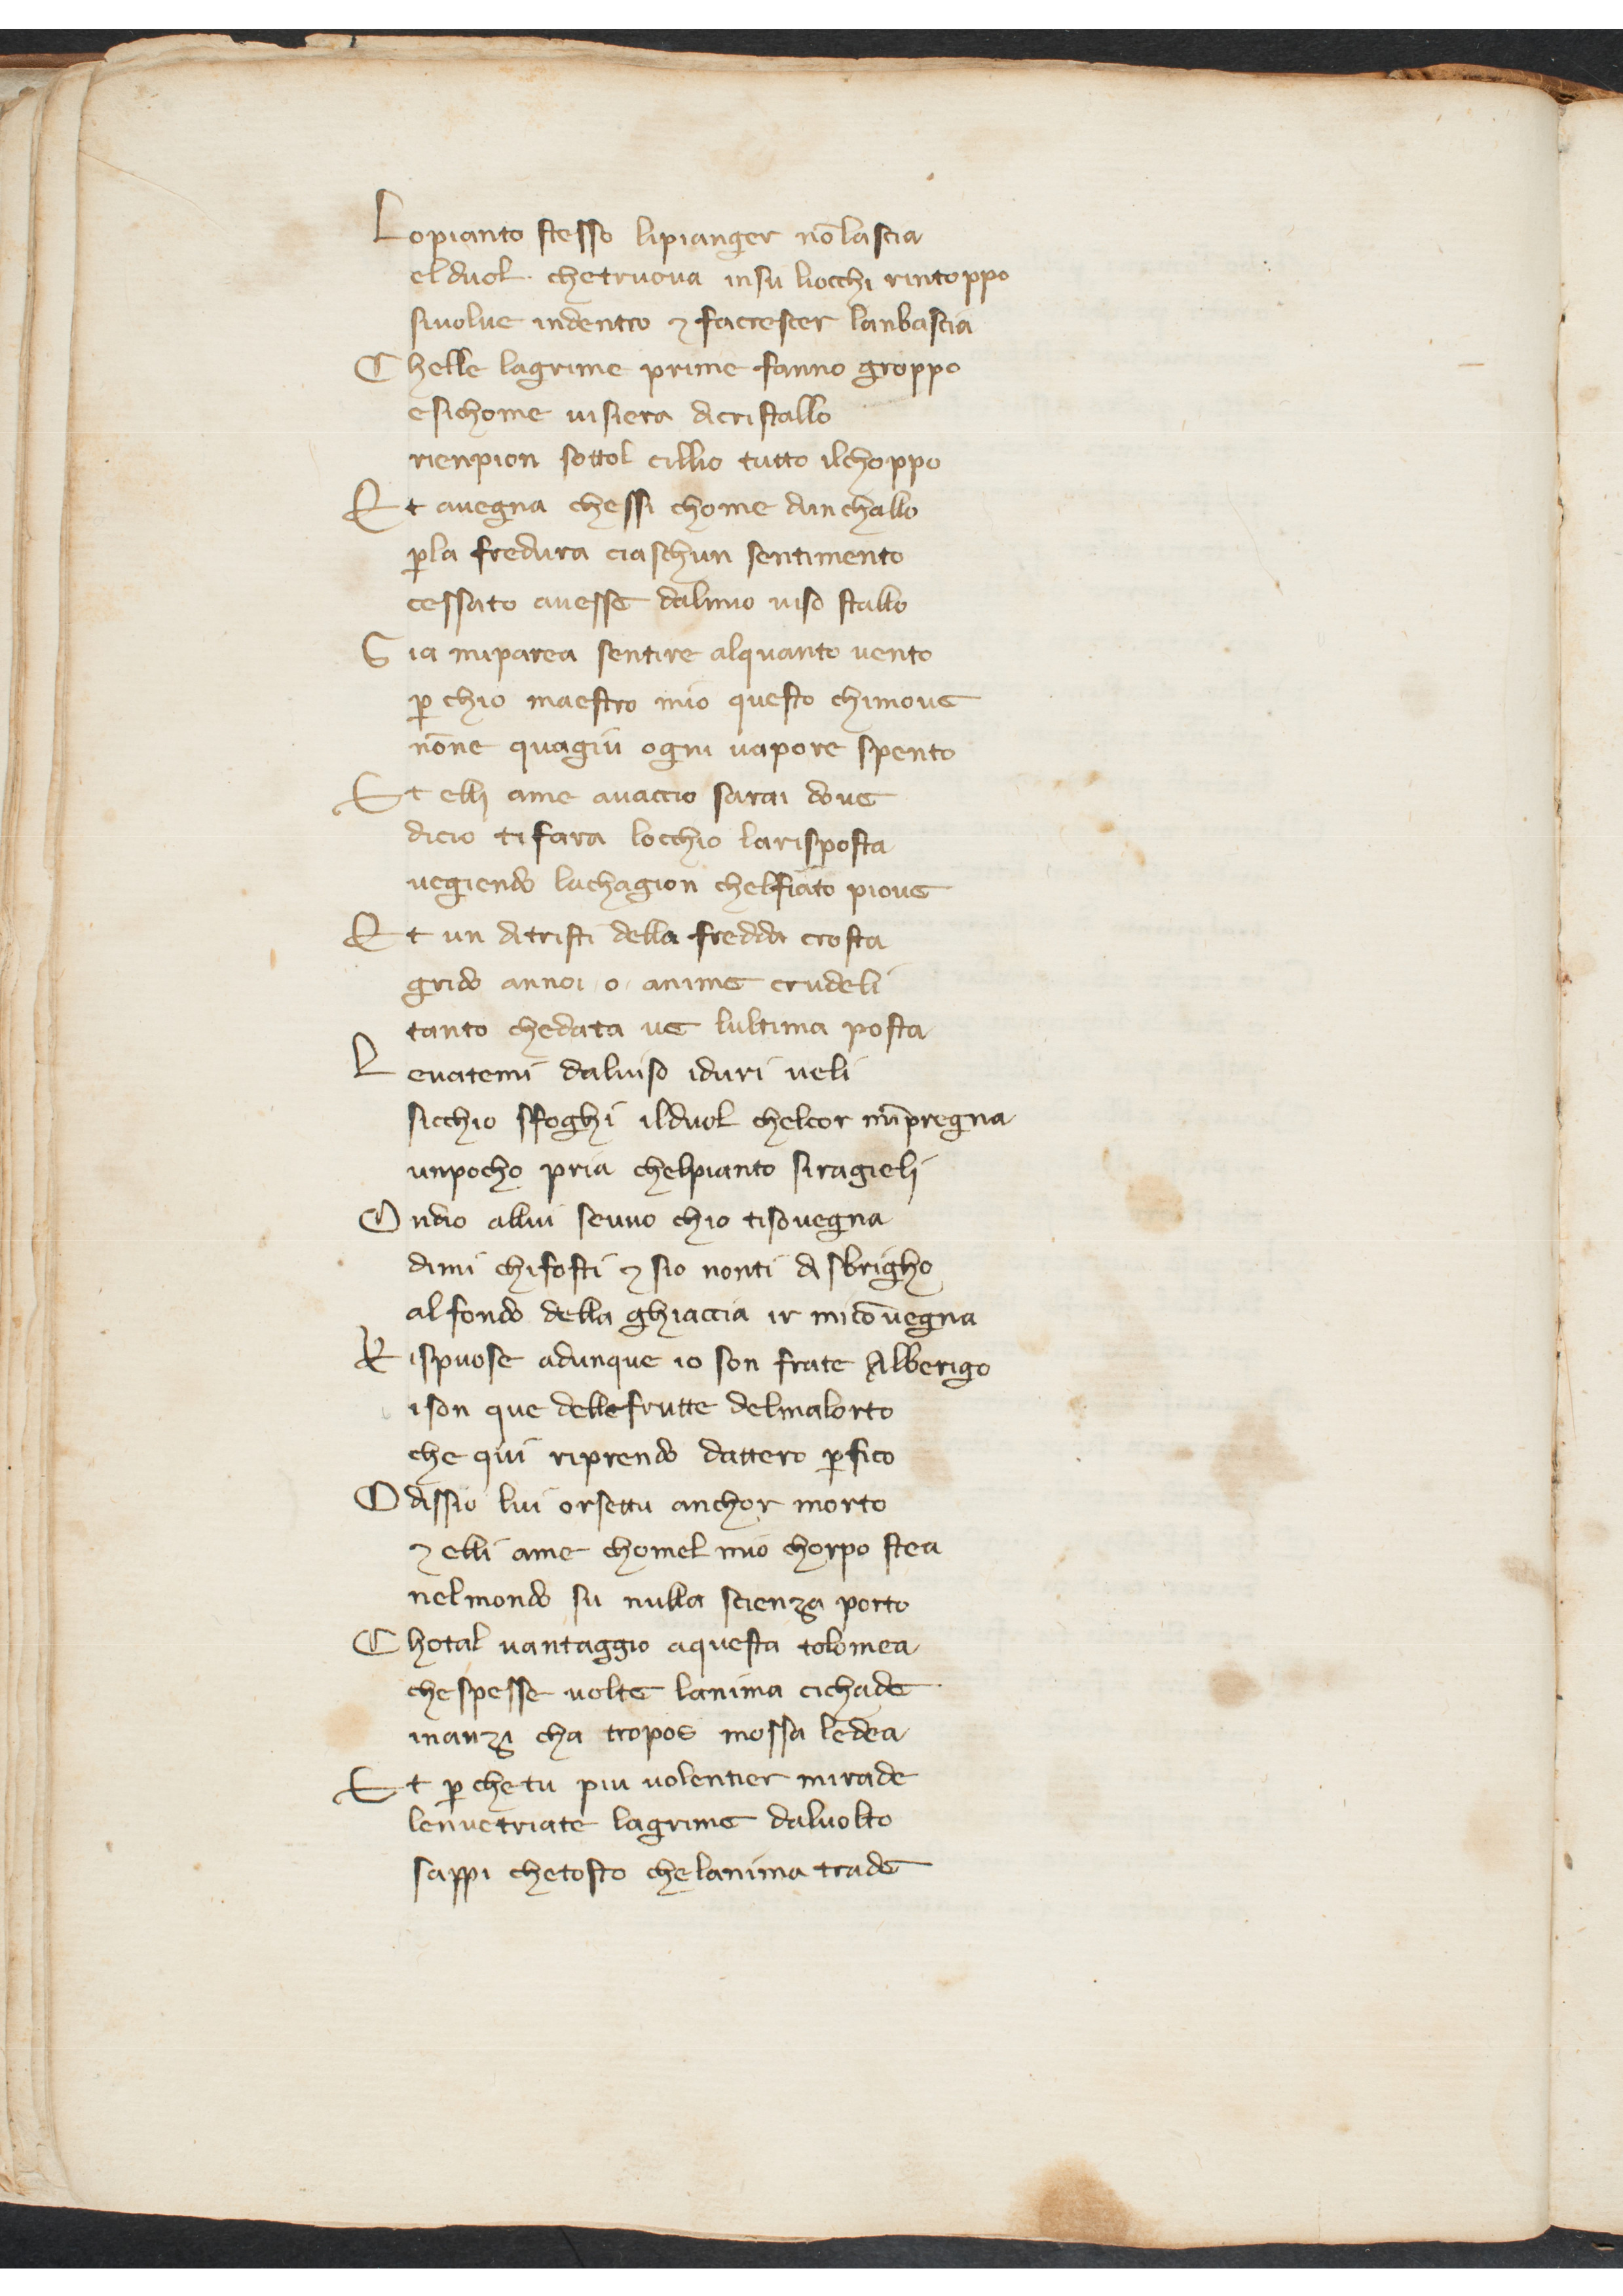 Lopianto stesso lipianger nō lascia
elduol · chetruova insu liocchi rintoppo
siuolue indentro ⁊ faccrescer lanbascia
Chelle lagrime prime fanno groppo
esichome uisiera dicristallo
rienpion sottol cillio tutto ilchoppo
Et auegna chessi chome dunchallo
ꝑla fredura ciaschun sentimento
cessato auesse dalmio uiso stallo
Gia miparea sentire alquanto uento
ꝑ chio maestro mio questo chimoue
nōne quagiu ogni uapore spento
Et elli ame auaccio sarai doue
dicio ti fara locchio larisposta
uegiendo lachagion chelfiato pioue
Et un ditristi della fredda crosta
grido annoi o anime crudeli
tanto chedata ue lultima posta
Leuatemi daluiso iduri ueli
sicchio sfoghi ilduol chelcor mīpregna
unpocho pria chelpianto siragieli
Ondio allui seuuo chio tisouegna
dimi chifosti ⁊ sio nonti disbrigho
alfondo della ghiaccia ir micōuegna
Rispuose adunque io son frate Alberigo
ison que dellefrutte delmalorto
che qui riprendo dattero ꝑfico
O dissio lui orsettu anchor morto
⁊ elli ame chomel mio chorpo stea
nelmondo su nulla scienza porto
Chotal uantaggio aquesta tolomea
chespesse uolte lanima cichade
inanzi cha tropos mossa ledea
Et ꝑ chetu piu uolentier mirade
lenuetriate lagrime daluolto
sappi chetosto chelanima trade